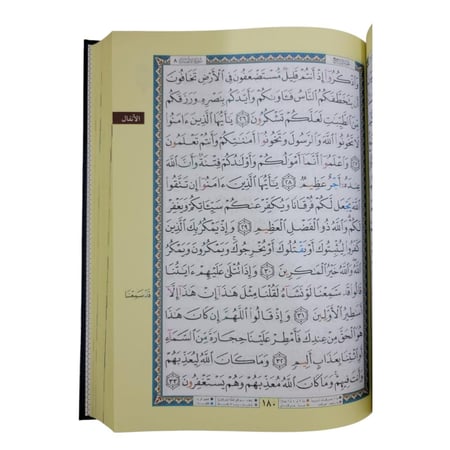 وَاذْكُرُوا إِذْ أَنتُمْ قَلِيلٌ مُّسْتَضْعَفُونَ فِي الْأَرْضِ تَخَافُونَ
أَن يَتَخَطَّفَكُمُ النَّاسُ فَآوَاكُمْ وَأَيَّدَكُم بِنَصْرِهِ وَرَزَقَكُم
مِّنَ الطَّيِّبَاتِ لَعَلَّكُمْ تَشْكُرُونَ ٢٦ يَا أَيُّهَا الَّذِينَ آمَنُوا
لَا تَخُونُوا اللَّهَ وَالرَّسُولَ وَتَخُونُوا أَمَانَاتِكُمْ وَأَنتُمْ تَعْلَمُونَ
٢٧ وَاعْلَمُوا أَنَّمَا أَمْوَالُكُمْ وَأَوْلَادُكُمْ فِتْنَةٌ وَأَنَّ اللَّهَ
عِندَهُ أَجْرٌ عَظِيمٌ ٢٨ يَا أَيُّهَا الَّذِينَ آمَنُوا إِن تَتَّقُوا
اللَّهَ يَجْعَل لَّكُمْ فُرْقَانًا وَيُكَفِّرْ عَنكُمْ سَيِّئَاتِكُمْ وَيَغْفِرْ
لَكُمْ وَاللَّهُ ذُو الْفَضْلِ الْعَظِيمِ ٢٩ وَإِذْ يَمْكُرُ بِكَ الَّذِينَ
كَفَرُوا لِيُثْبِتُوكَ أَوْ يَقْتُلُوكَ أَوْ يُخْرِجُوكَ وَيَمْكُرُونَ وَيَمْكُرُ
اللَّهُ وَاللَّهُ خَيْرُ الْمَاكِرِينَ ٣٠ وَإِذَا تُتْلَىٰ عَلَيْهِمْ آيَاتُنَا
قَالُوا قَدْ سَمِعْنَا لَوْ نَشَاءُ لَقُلْنَا مِثْلَ هَٰذَا إِنْ هَٰذَا إِلَّا
أَسَاطِيرُ الْأَوَّلِينَ ٣١ وَإِذْ قَالُوا اللَّهُمَّ إِن كَانَ هَٰذَا
هُوَ الْحَقَّ مِنْ عِندِكَ فَأَمْطِرْ عَلَيْنَا حِجَارَةً مِّنَ السَّمَاءِ
أَوِ ائْتِنَا بِعَذَابٍ أَلِيمٍ ٣٢ وَمَا كَانَ اللَّهُ لِيُعَذِّبَهُمْ
وَأَنتَ فِيهِمْ وَمَا كَانَ اللَّهُ مُعَذِّبَهُمْ وَهُمْ يَسْتَغْفِرُونَ ٣٣
الأنفال
قَدْ سَمِعْنَا
١٨٠